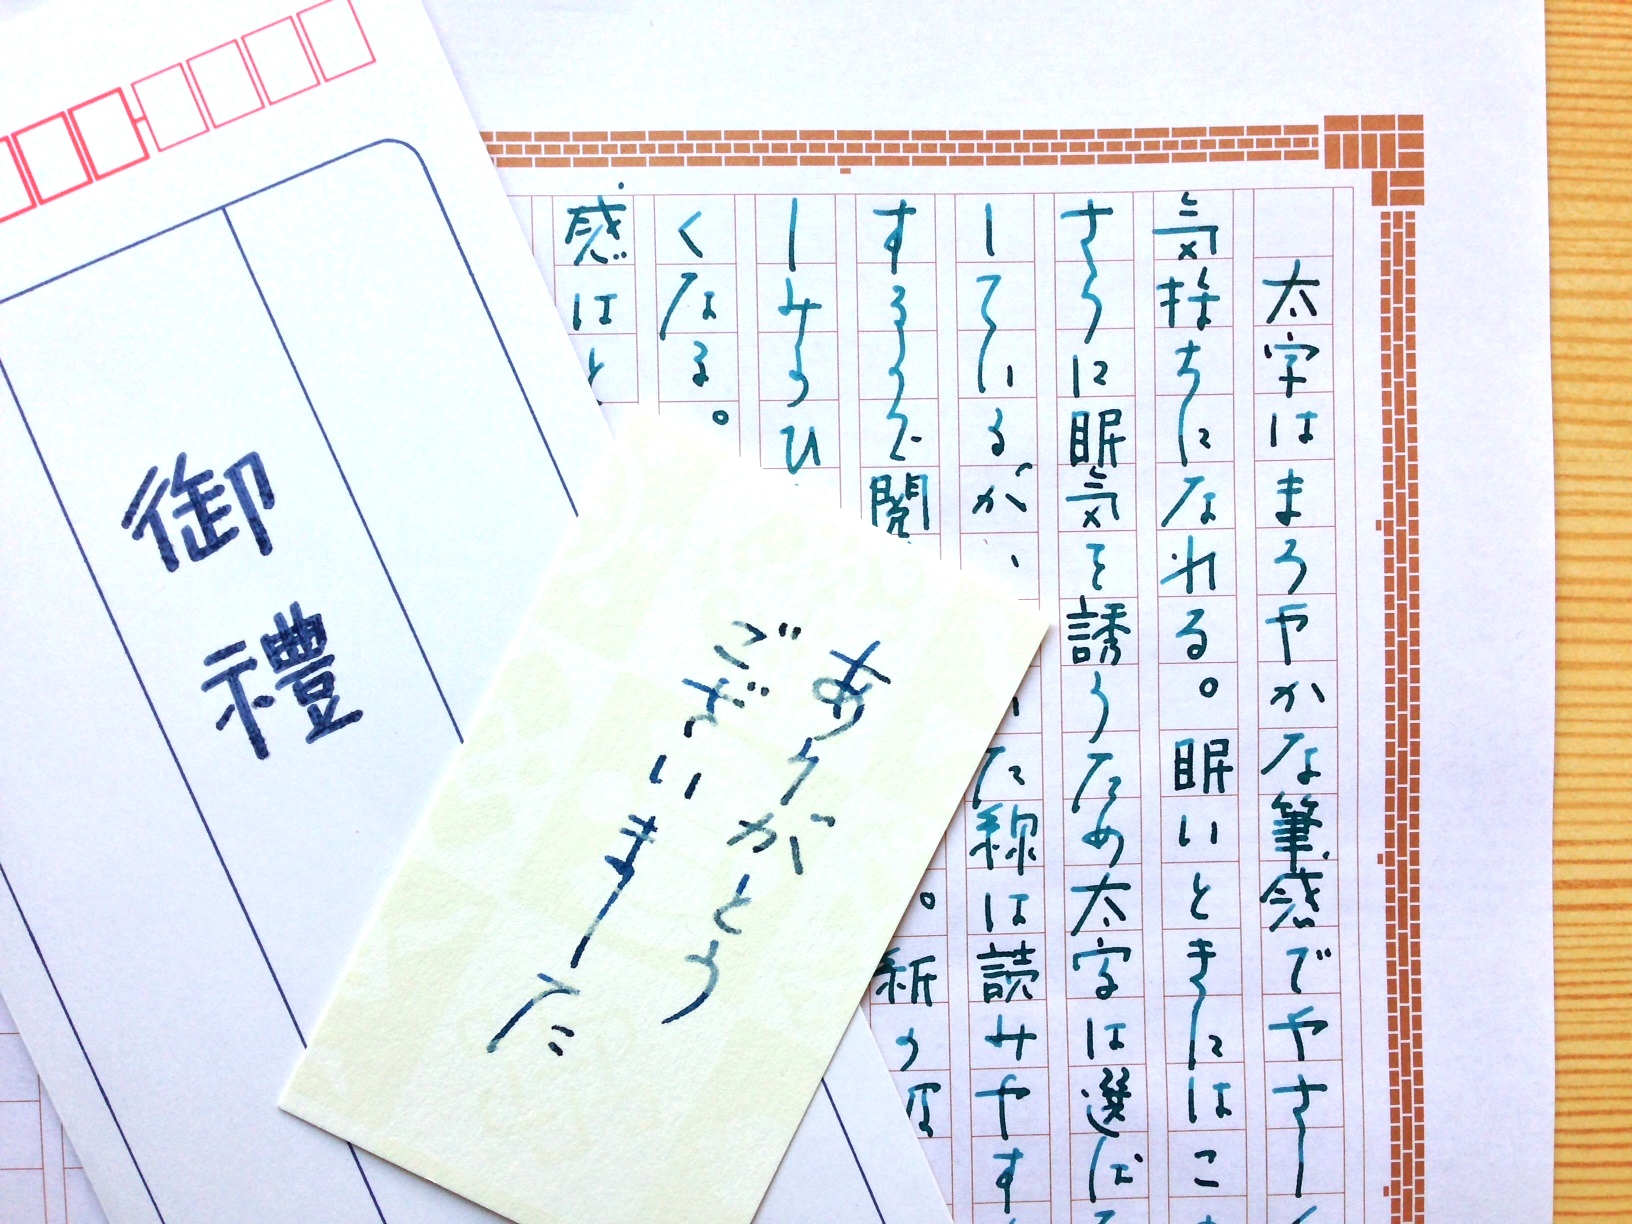 太字はまろやかな筆感でやさし
気持ちになれる。眠いときにはこ
さらに眠気を誘うため太字は選ば
しているが、
た線は読みやす
するので
。紙の
しみのひ
くなる。
感はと
ありがとう
ございました
御禮